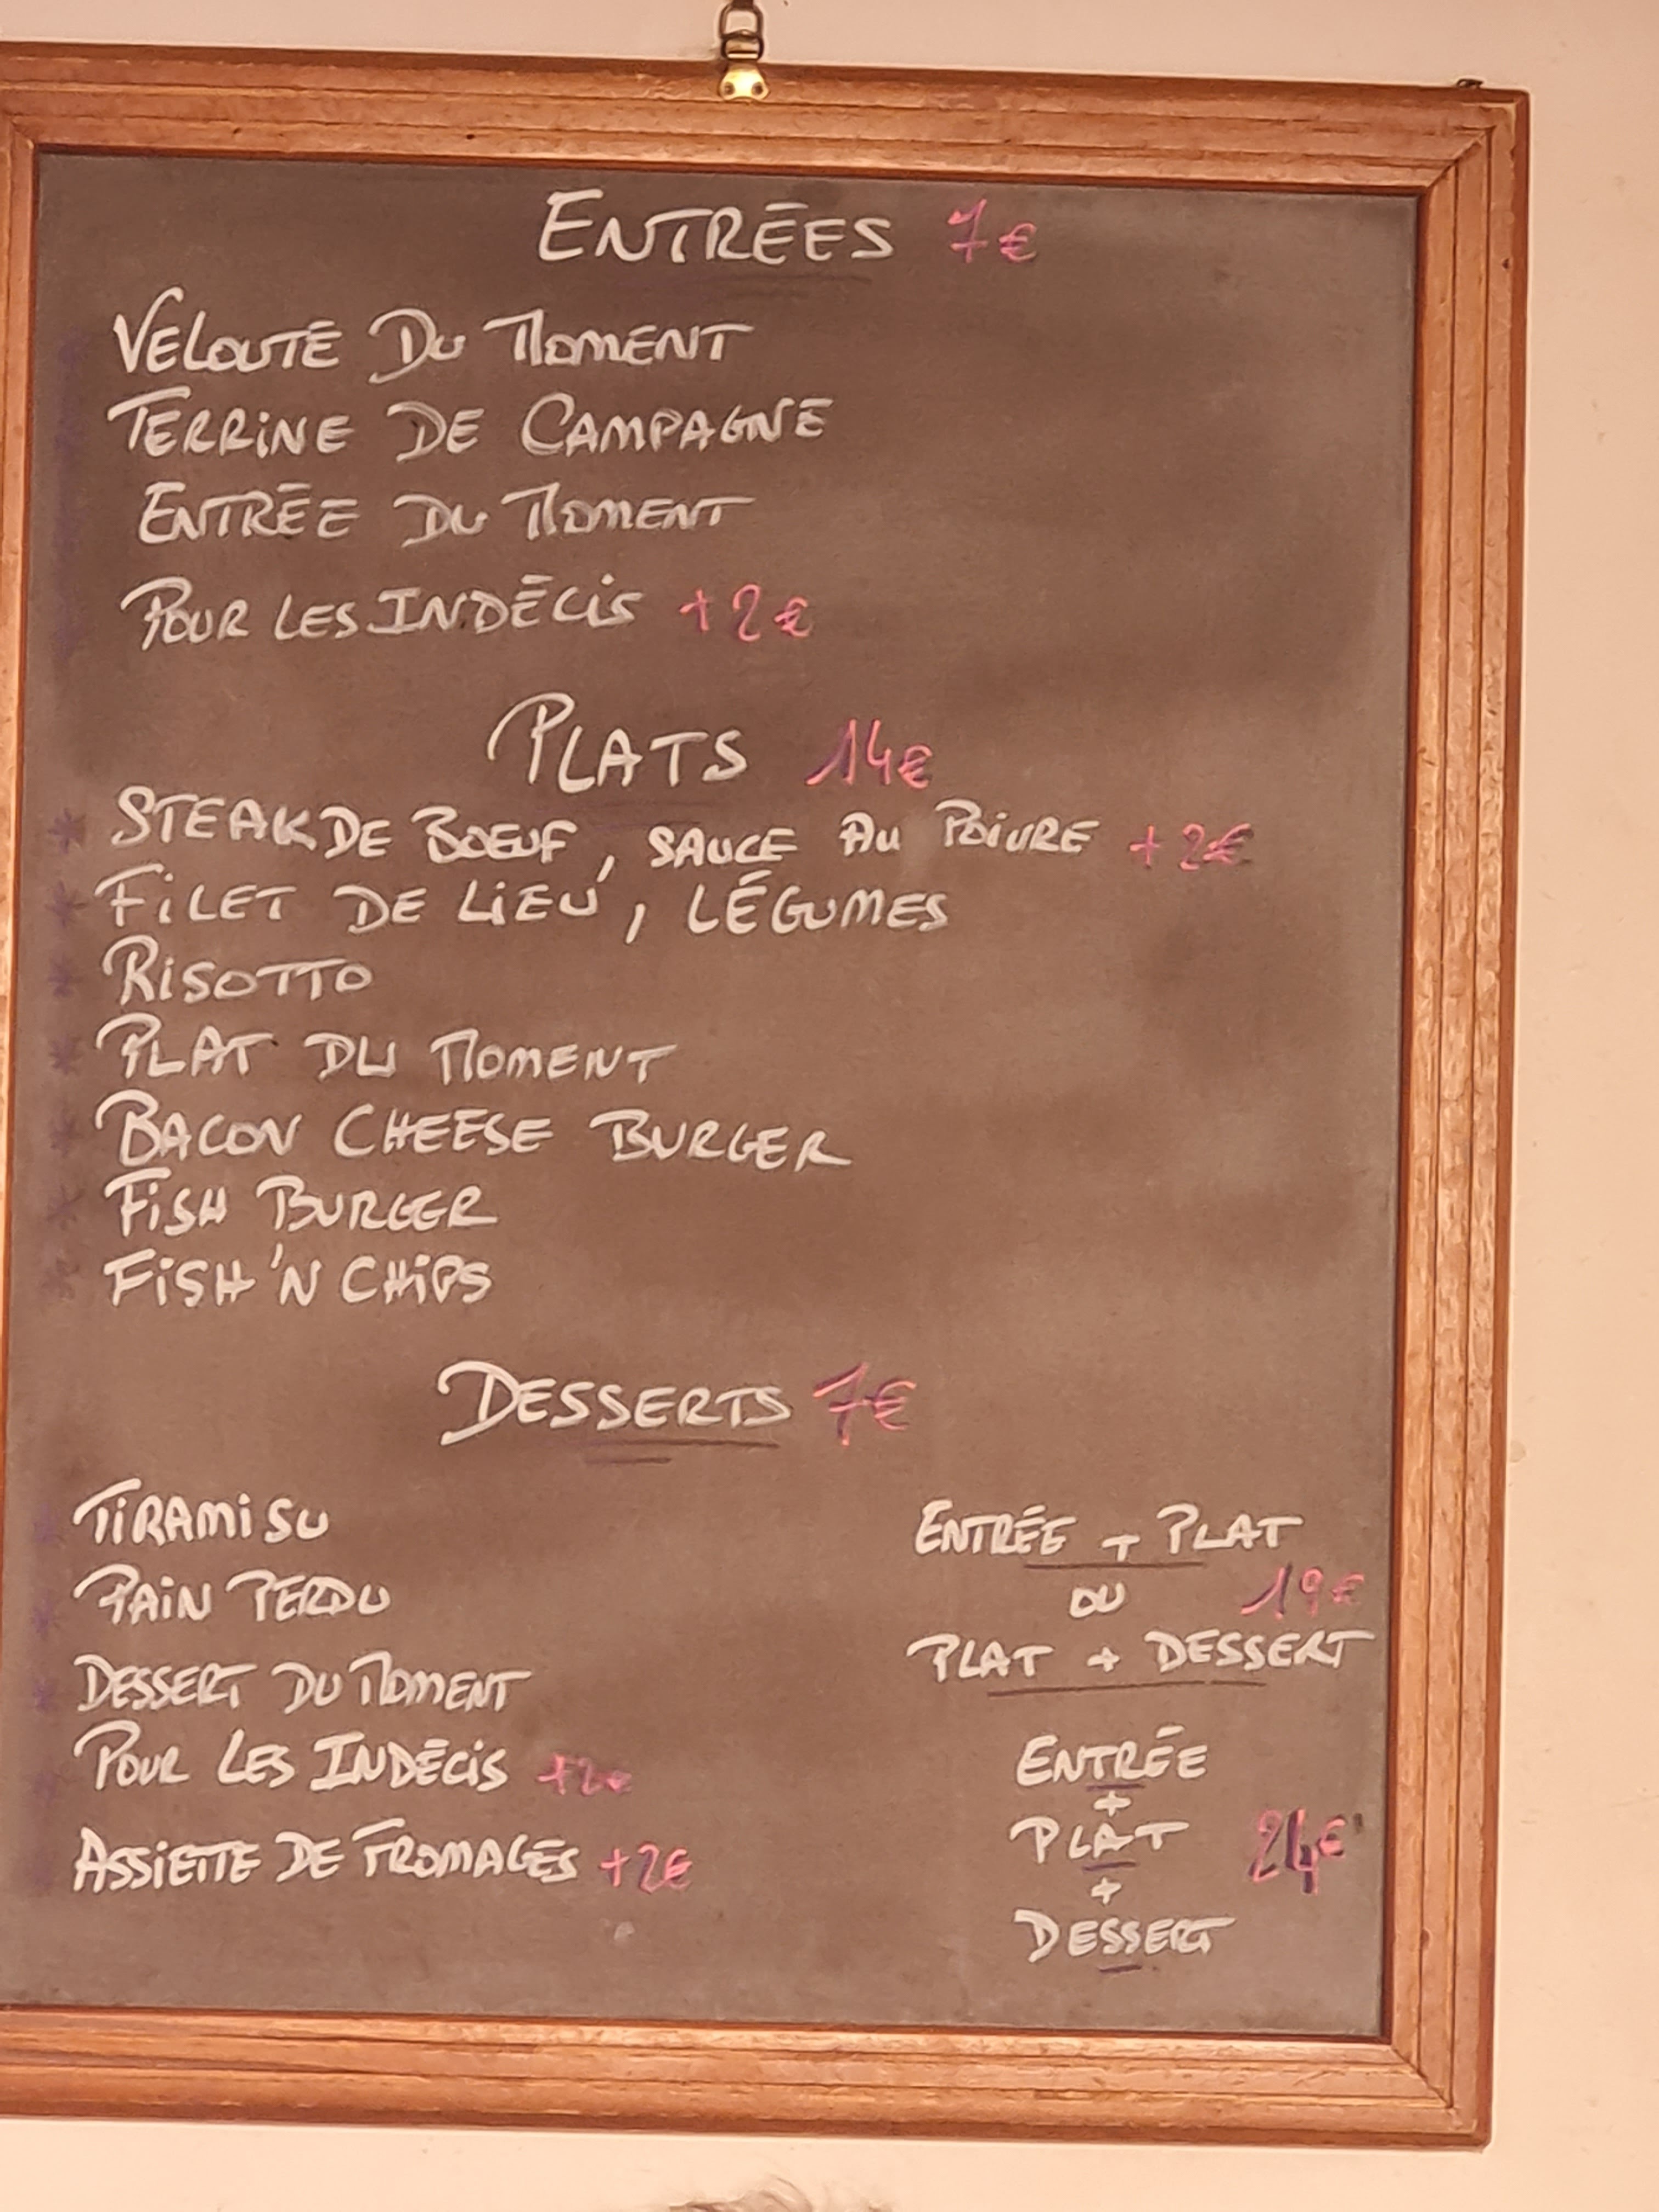 ENTRÉES 7€
VELOUTÉ DU MOMENT
TERRINE DE CAMPAGNE
ENTRÉE DU MOMENT
POUR LES INDÉCIS +2€
PLATS 14€
* STEAK DE BOEUF, SAUCE AU POIVRE +2€
* FILET DE LIEU, LÉGUMES
* RISOTTO
* PLAT DU MOMENT
* BACON CHEESE BURGER
* FISH BURGER
* FISH 'N CHIPS
DESSERTS 7€
* TIRAMISU
* PAIN PERDU
* DESSERT DU MOMENT
POUR LES INDÉCIS +2€
ASSIETTE DE FROMAGES +2€
ENTRÉE + PLAT
OU 19€
PLAT + DESSERT
ENTRÉE
+
PLAT 24€
+
DESSERT